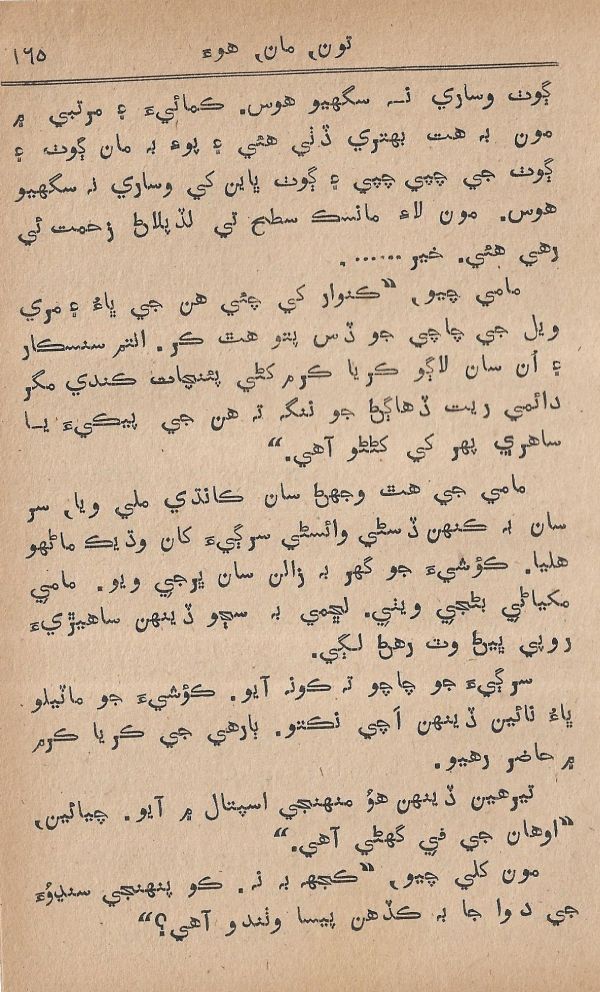 تون، مان، هوءَ
١٦٥
ڳوٺ وساري نہ سگهيو هوس. ڪمائيءَ ۽ مرتبي ۾
مون بہ هت بهتري ڏٺي هئي ۽ پوءِ بہ مان ڳوٺ ۽
ڳوٺ جي چپي چپي ۽ ڳوٺ ڀاين کي وساري نہ سگهيو
هوس. مون لاءِ مانسڪ سطح تي لڏپلاڻ زحمت ٿي
رهي هئي. خير .......
مامي چيو، ”ڪنوار کي چئي هن جي ڀاءُ ۽ مري
ويل جي چاچي جو ڏس پتو هٿ ڪر. انتم سنسڪار
۽ اُن سان لاڳو ڪريا ڪرم کڻي پئنچات ڪندي مگر
دائمي ريت ڏهاڳڻ جو ننگہ تہ هن جي پيڪيءَ يا
ساهري پهر کي کڻڻو آهي.“
مامي جي هٿ وجهڻ سان ڪانڌي ملي ويا، سر
سان بہ ڪنهن ڏسڻي وائسڻي سرڳيءَ کان وڌيڪ ماڻهو
هليا. ڪؤشيءَ جو گهر بہ زالن سان ڀرجي ويو. مامي
مکياڻي بڻجي ويٺي. لڇمي بہ سڄو ڏينهن ساهيڙيءَ
روپي ڀيڻ وٽ رهڻ لڳي.
سرڳيءَ جو چاچو تہ ڪونہ آيو. ڪؤشيءَ جو ماٽيلو
ڀاءُ نائين ڏينهن اَچي نڪتو. ٻارهي جي ڪريا ڪرم
۾ حاضر رهيو.
تيرهين ڏينهن هوُ منهنجي اسپتال ۾ آيو. چيائين،
”اوهان جي في گهڻي آهي.“
مون کلي چيو، ”ڪجهہ بہ نہ. ڪو پنهنجي سنڍوُءَ
جي دوا جا بہ ڪڏهن پيسا وٺندو آهي؟“